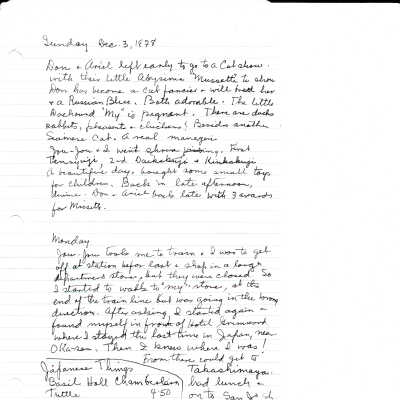 Sunday Dec. 3, 1978
Don & Ariel left early to go to a Cat show.
with their little Abyssinia "Mussette" to show
Don has become a cat fancier & will breed her
& a Russian Blue. Both adorable. The little
Dachsund "My" is pregnant. There are ducks
rabbits, pheasants & chickens! Besides another
Siamese Cat. A real menagerie
Jou-Jou & I went shrine First
Tenryuji, 2nd Daikakuji & Kinkakuji
A beautiful day, bought some small toys
for children. Back in late afternoon,
divine. Don & Ariel back late with 3 awards
for Mussette.
Monday
Jou-Jou took me to train & I was to get
off at station before last & shop in a large
department store, but they were closed. So
I started to walk to "my" store, at the
end of the train line but was going in the wrong
direction. After asking, I started again &
found myself in front of Hotel
where I stayed the last time in Japan, near
Then I knew where I was!
From there could get to
Japanese Things
Basil Hall Chamberlain
Tuttle 4.50
Takashimaya.
had lunch &
on to